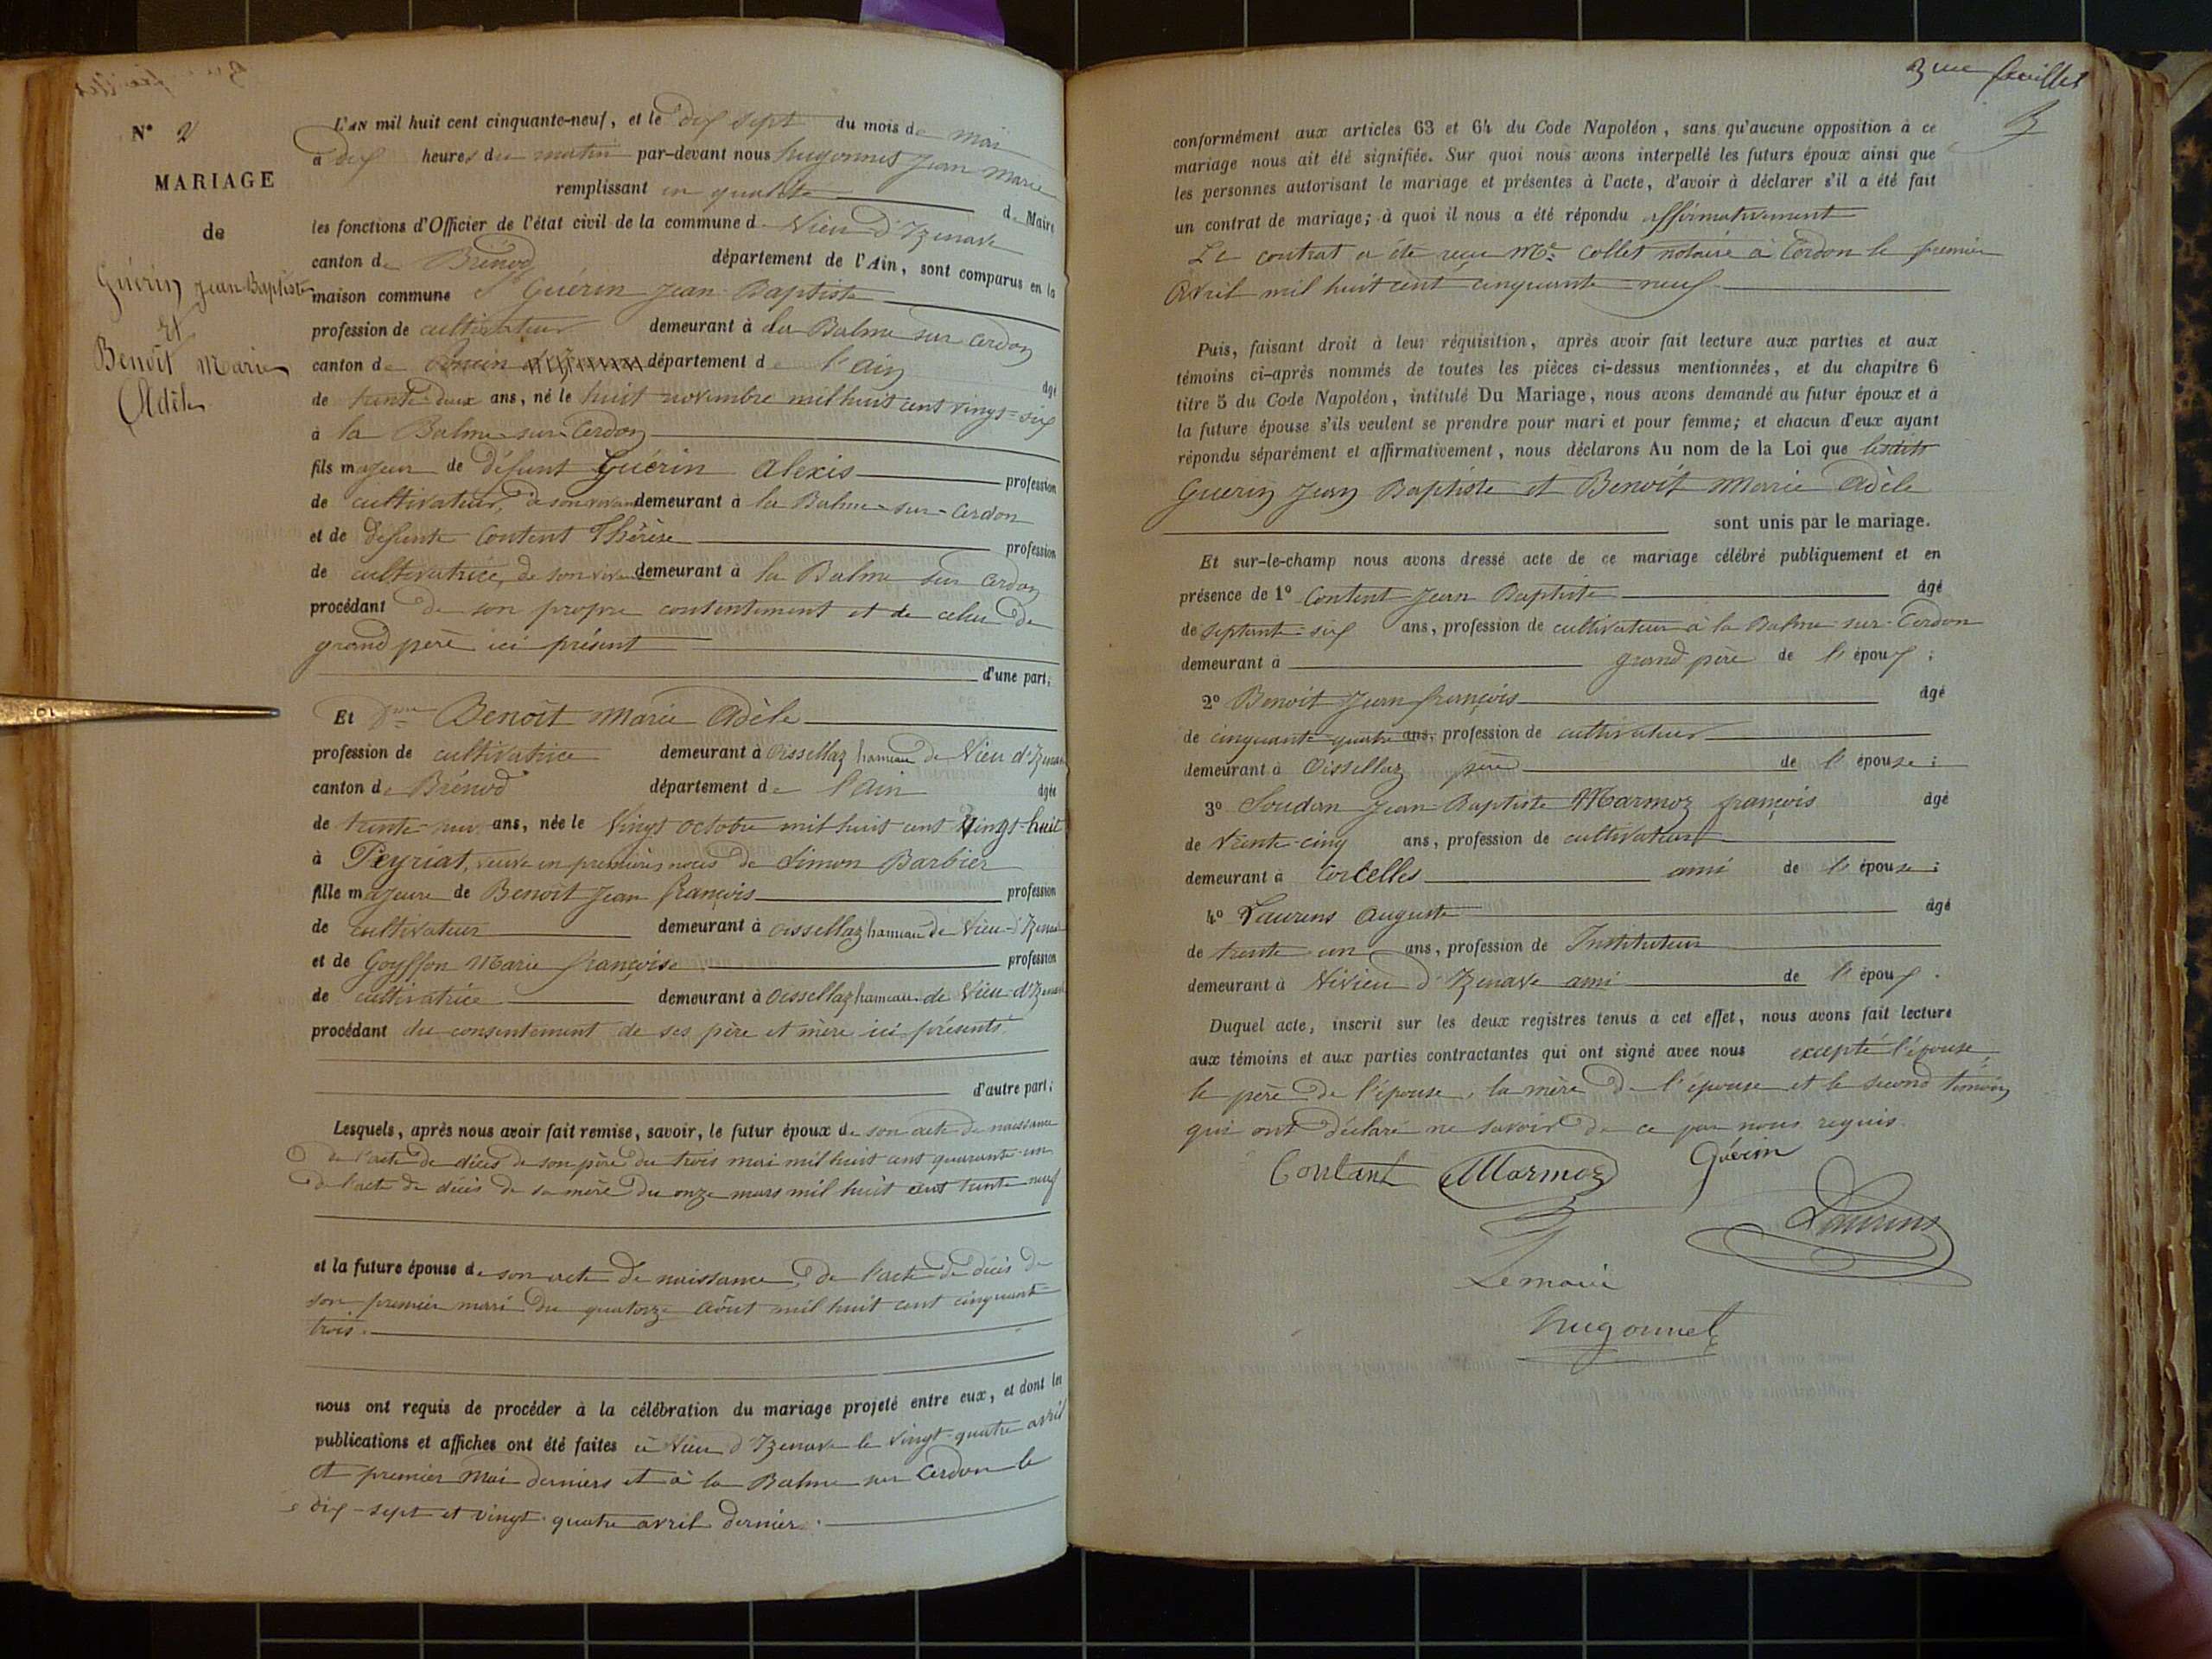 N° 2
MARIAGE
de
Guérin Jean-Baptiste
Et
Benoît Marie
Adèle
L'an mil huit cent cinquante-neuf, et le dix sept du mois de mai
à dix heures du matin par-devant nous hugonnet Jean Marie
remplissant en qualité de Maire
les fonctions d'Officier de l'état civil de la commune d Vieu d'Izenave
canton de Brénod département de l'Ain, sont comparus en la
maison commune Sr Guérin Jean Baptiste
profession de cultivateur demeurant à La Balme sur Cerdon
canton de département de l'ain âgé
de trente-deux ans, né le huit novembre mil huit cent vingt-six
à la Balme-sur-Cerdon
fils majeur de défunt Guérin Alexis profession
de cultivateur, de son vivant demeurant à la Balme-sur-Cerdon
et de défunte Content Thérèse profession
de cultivatrice, de son vivant demeurant à la Balme sur Cerdon
procédant de son propre contentement et de celui de
grand père ici présent
d'une part;
Et Benoît Marie Adèle
profession de cultivatrice demeurant à Oissellaz hameau de Vieu d'Izenave
canton de Brénod département de l'Ain âgée
de trente ans, née le vingt octobre mil huit cent vingt-huit
à Peyriat, veuve en premières noces de Simon Barbier
fille majeure de Benoit Jean françois profession
de cultivateur demeurant à oissellaz hameau de Vieu-d'Izenave
et de Goyffon Marie françoise profession
de cultivatrice demeurant à Oissellaz hameau de Vieu-d'Izenave
procédant du consentement de ses père et mère ici présents
d'autre part;
Lesquels, après nous avoir fait remise, savoir, le futur époux de son acte de naissance
de l'acte de décès de son père du trois mai mil huit cent quarante-un
de l'acte de décès de sa mère du onze mars mil huit cent trente neuf
et la future épouse de son acte de naissance, de l'acte de décès de
son premier mari du quatorze août mil huit cent cinquante-
trois.
nous ont requis de procéder à la célébration du mariage projeté entre eux, et dont les
publications et affiches ont été faites à Vieu d'Izenave le vingt-quatre avril
et premier mai derniers et à la Balme sur Cerdon le
dix-sept et vingt-quatre avril dernier.
3me feuillet
3
conformément aux articles 63 et 64 du Code Napoléon, sans qu'aucune opposition à ce
mariage nous ait été signifiée. Sur quoi nous avons interpellé les futurs époux ainsi que
les personnes autorisant le mariage et présentes à l'acte, d'avoir à déclarer s'il a été fait
un contrat de mariage; à quoi il nous a été répondu affirmativement
Le contrat a été reçu Me collet notaire à Cerdon le premier
Avril mil huit cent cinquante-neuf
Puis, faisant droit à leur réquisition, après avoir fait lecture aux parties et aux
témoins ci-après nommés de toutes les pièces ci-dessus mentionnées, et du chapitre 6
titre 5 du Code Napoléon, intitulé Du Mariage, nous avons demandé au futur époux et à
la future épouse s'ils veulent se prendre pour mari et pour femme; et chacun d'eux ayant
répondu séparément et affirmativement, nous déclarons Au nom de la Loi que lesdits
Guerin Jean Baptiste et Benoît Marie Adèle
sont unis par le mariage.
Et sur-le-champ nous avons dressé acte de ce mariage célébré publiquement et en
présence de 1° Content Jean Baptiste âgé
de septante-six ans, profession de cultivateur à la Balme-sur-Cerdon
demeurant à grand père de l'époux;
2° Benoit Jean françois âgé
de cinquante-quatre ans, profession de cultivateur
demeurant à Oissellaz père de l'épouse;
3° Soudan Jean-Baptiste Marmoz françois âgé
de trente-cinq ans, profession de cultivateur
demeurant à Corcelles ami de l'épouse;
4° Laurens Auguste âgé
de trente un ans, profession de Instituteur
demeurant à Vivieu d'Izenave ami de l'époux.
Duquel acte, inscrit sur les deux registres tenus à cet effet, nous avons fait lecture
aux témoins et aux parties contractantes qui ont signé avec nous excepté l'épouse,
le père de l'épouse, la mère de l'épouse et le second témoin
qui ont déclaré ne savoir de ce par nous requis.
Contant Marmoz Guérin
Laurens
Le maire
hugonnet